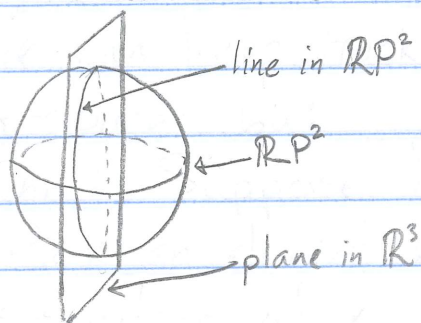 line in ℝP²
ℝP²
plane in ℝ³